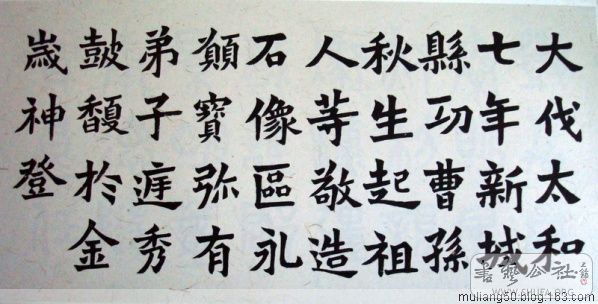 大伐太和
七年新城
縣功曹孫
秋生起祖
人等敬造
石像區永
願寶弥有
弟子庭秀
鼓馥於金
歲神登
書艺公社
SHUFA.ORG
muliang50.blog.163.com